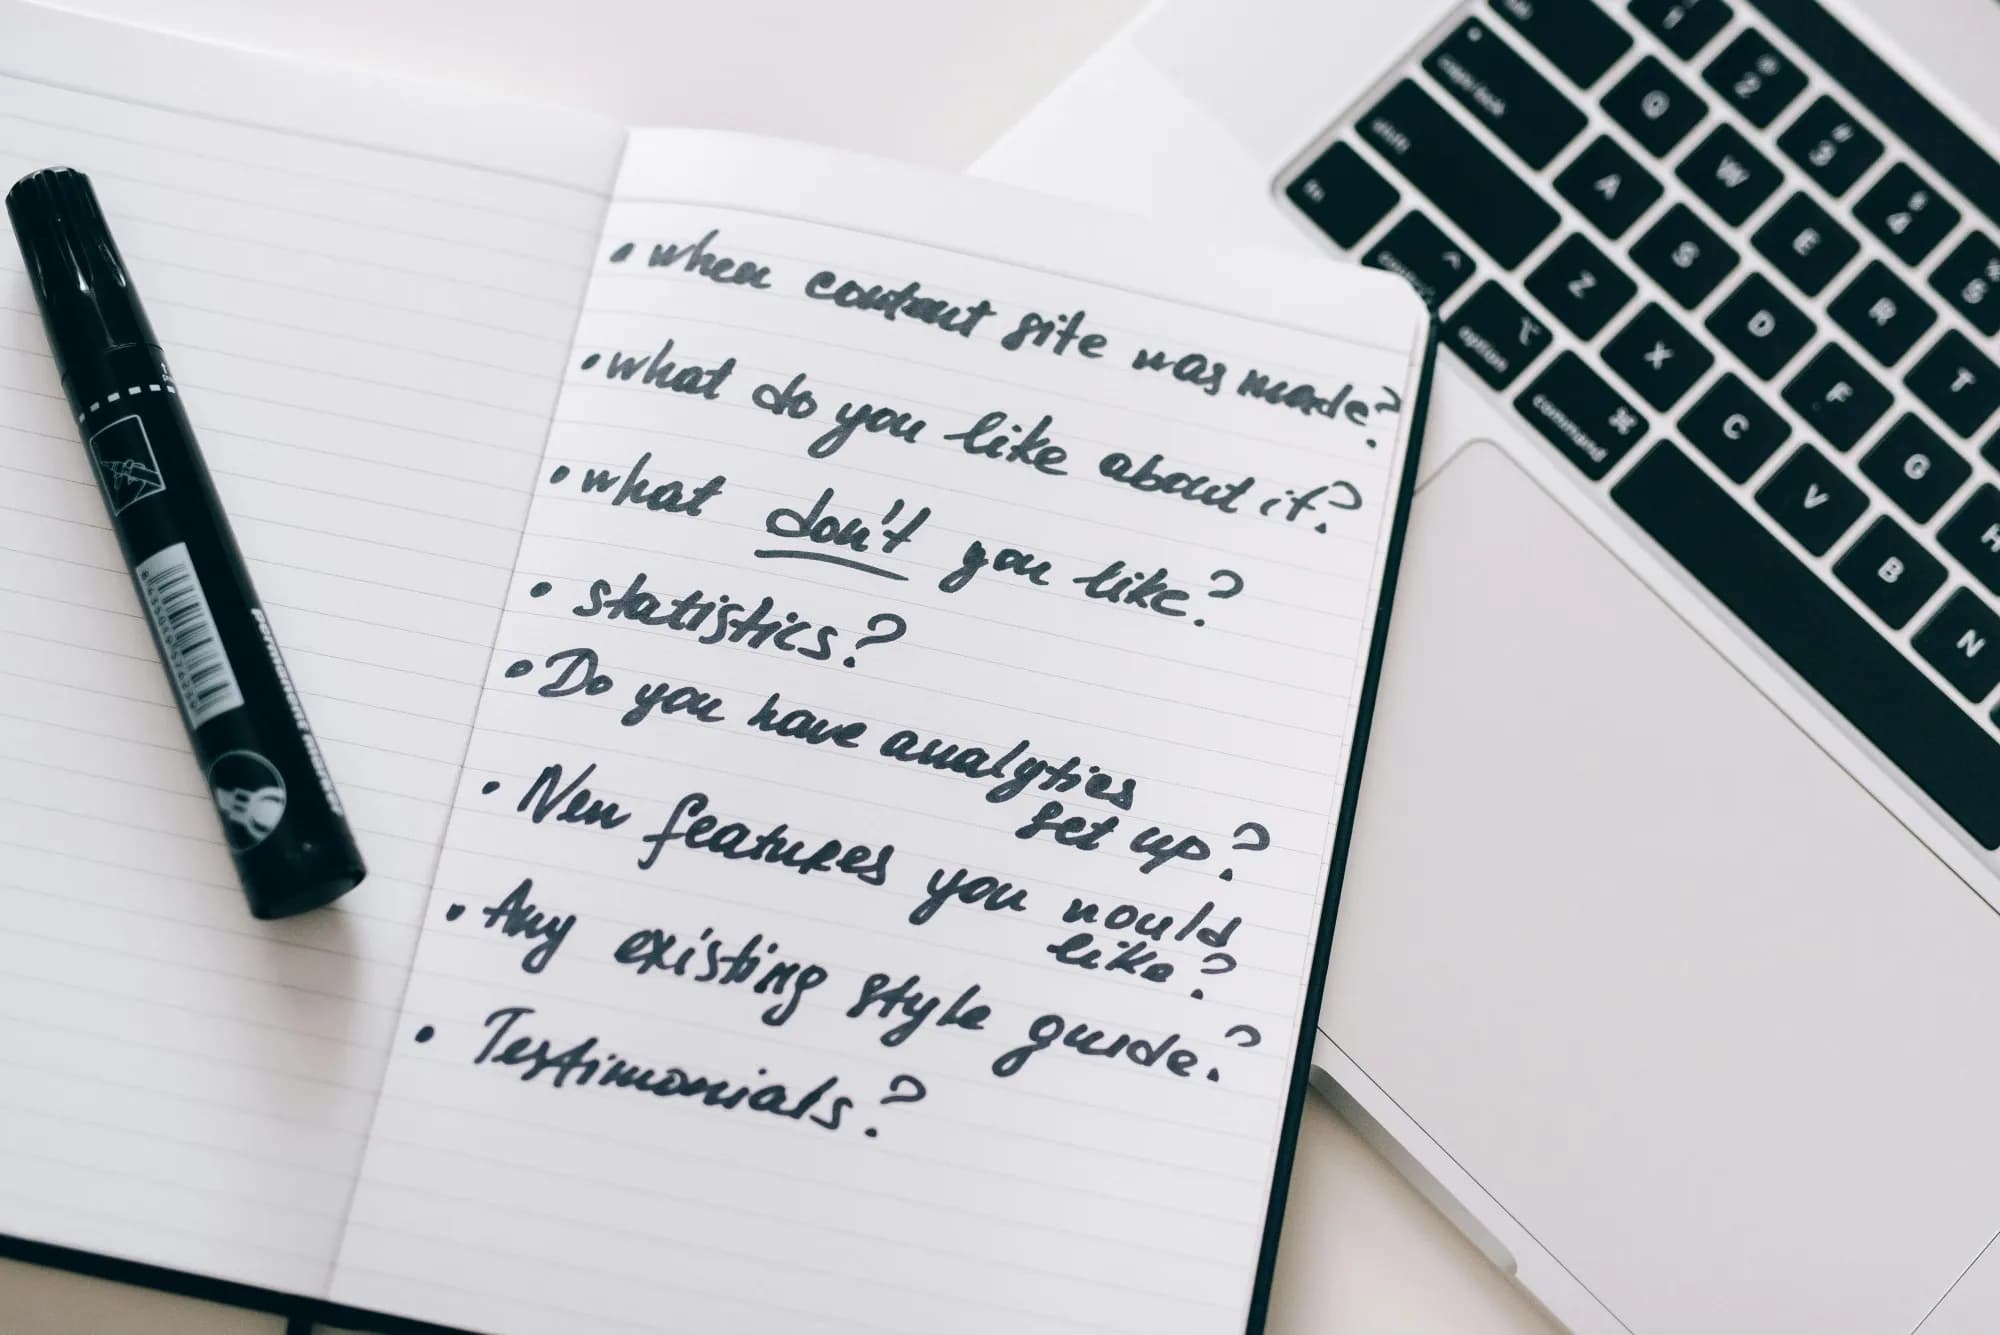 • when content site was made?
• what do you like about it?
• what don't you like?
• statistics?
• Do you have analytics
set up?
• New features you would
like?
• Any existing style guide?
• Testimonials?
permanent marker
esc
caps lock
shift
fn
control
option
command
1
@ 2
# 3
$ 4
% 5
Q W E R T
A S D F G H
Z X C V B N